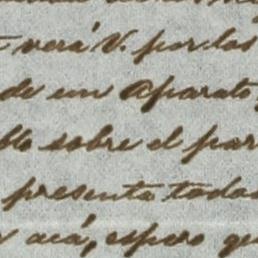 verá V. por los
de un Aparato
sobre el par
presenta todas
acá, espero qu